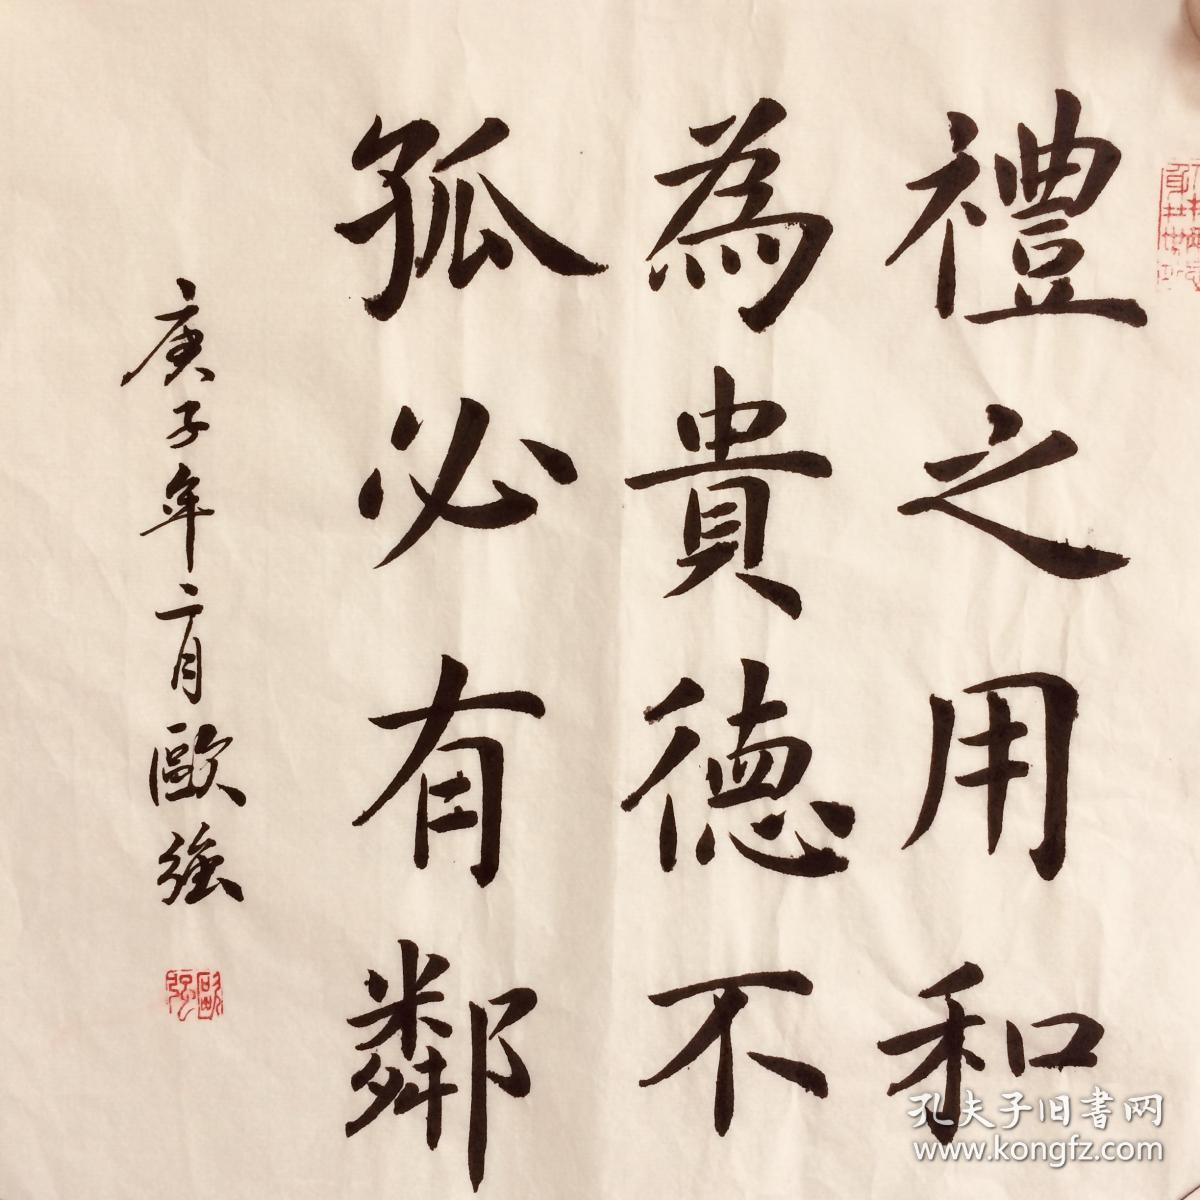 禮之用和
為貴德不
孤必有鄰
庚子年二月歐強
歐強
孔夫子旧書网
www.kongfz.com